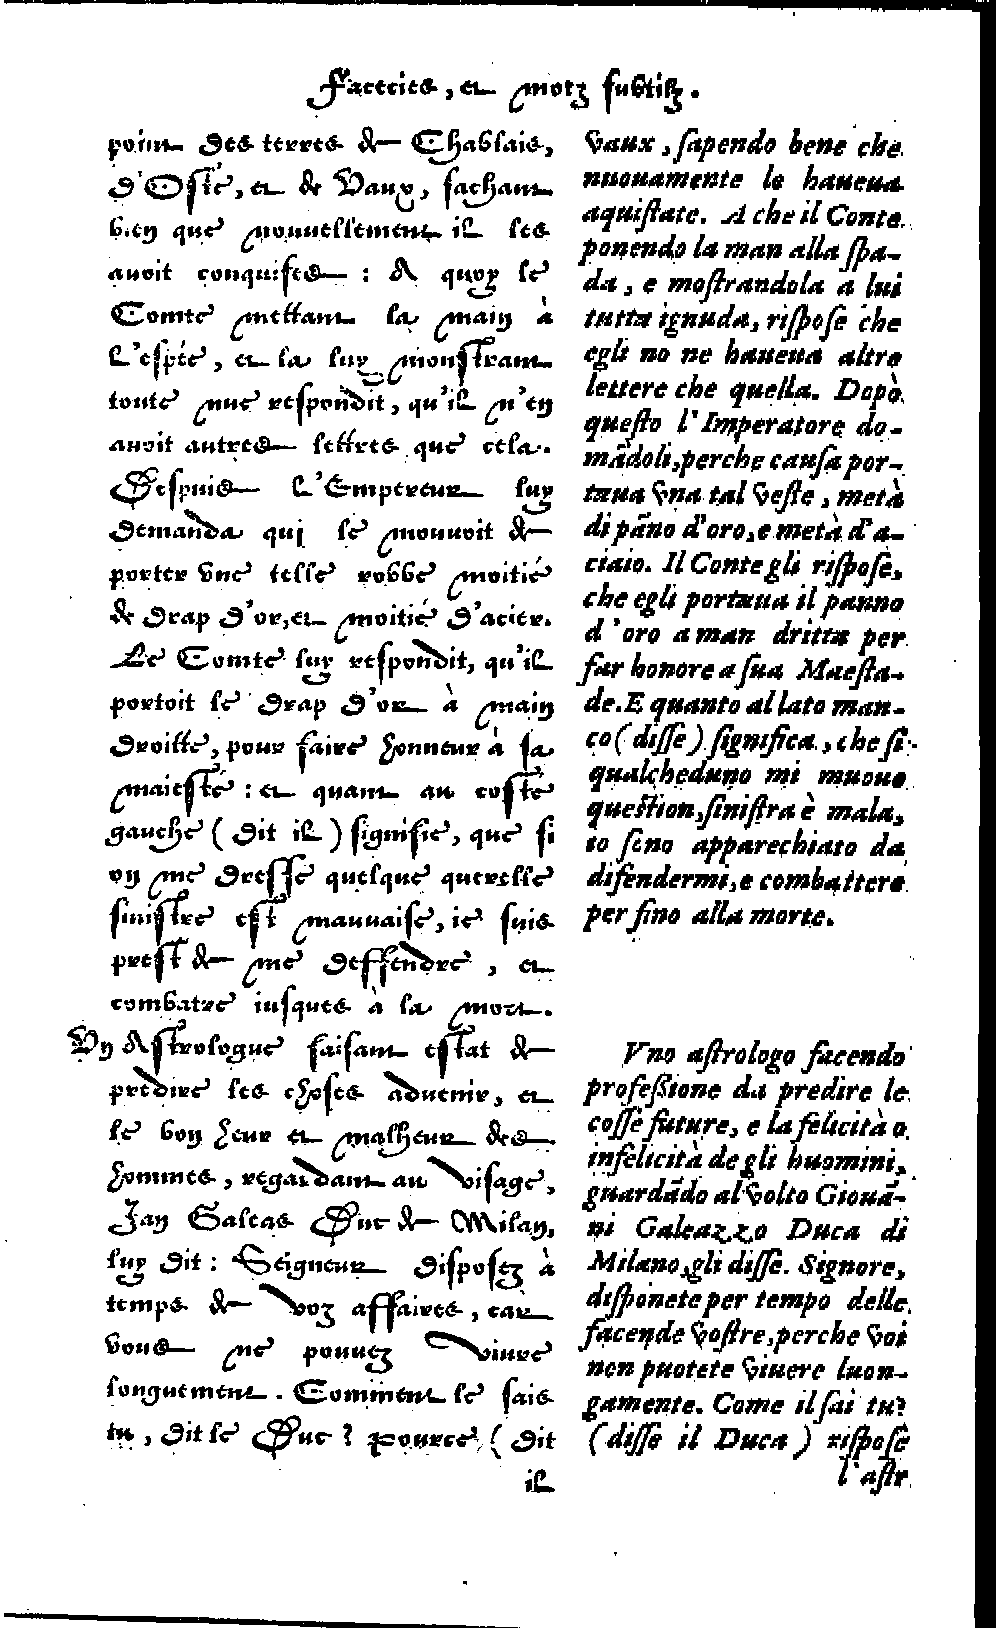 Facecies, et motz subtilz.
point des terres de Chablais,
d'Oste, et de Vaux, sachant
bien que nouuellement il les
auoit conquises : A quoy le
Comte mettant la main à
l'espée, et la luy monstrant
toute nue respondit, qu'il n'en
auoit autres lettres que cela.
Despuis l'Empereur luy
demanda qui le mouuoit de
porter vne telle robbe moitié
de drap d'or, et moitié d'acier.
Le Comte luy respondit, qu'il
portoit le drap d'or à main
droitte, pour faire honneur à sa
maiesté : et quant au costé
gauche ( dit il ) signifie, que si
on me dresse quelque querelle
sinistre est mauuaise, ie suis
prest de me deffendre , et
combatre iusques à la mort.
Vn Astrologue faisant estat de
predire les choses aduenir, et
le bon heur et malheur des
hommes, regardant au visage,
Jan Galeas Duc de Milan,
luy dit : Seigneur disposez à
temps de voz affaires, car
vous ne pouuez viure
longuement. Comment le sais
tu, dit le Duc ? Pource ( dit
il
vaux, sapendo bene che
nuouamente le haueua
aquistate. A che il Conte
ponendo la man alla spa-
da, e mostrandola a lui
tutta ignuda, rispose che
egli no ne haueua altre
lettere che quella. Dopò
questo l'Imperatore do-
mãdoli, perche causa por-
taua vna tal veste, metà
di pãno d'oro, e metà d'a-
ciaio. Il Conte gli rispose,
che egli portaua il panno
d'oro a man dritta per
far honore a sua Maesta-
de. E quanto al lato man-
co ( disse ) significa, che si
qualcheduno mi muoue
question, sinistra è mala,
io seno apparechiato da
difendermi, e combattere
per fino alla morte.
Vno astrologo facendo
professione da predire le
cosse future, e la felicità o
infelicità de gli huomini,
guardãdo al volto Giouã-
ni Galeazzo Duca di
Milano, gli disse. Signore,
disponete per tempo delle
facende vostre, perche voi
non puotete viuere luon-
gamente. Come il sai tu?
( disse il Duca ) rispose
l'astr